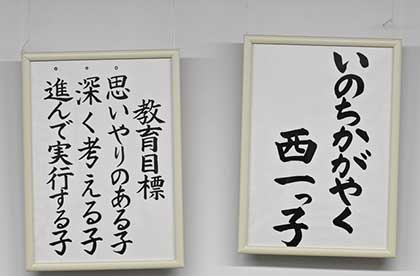 いのちかがやく
西一っ子
教育目標
。思いやりのある子
。深く考える子
。進んで実行する子